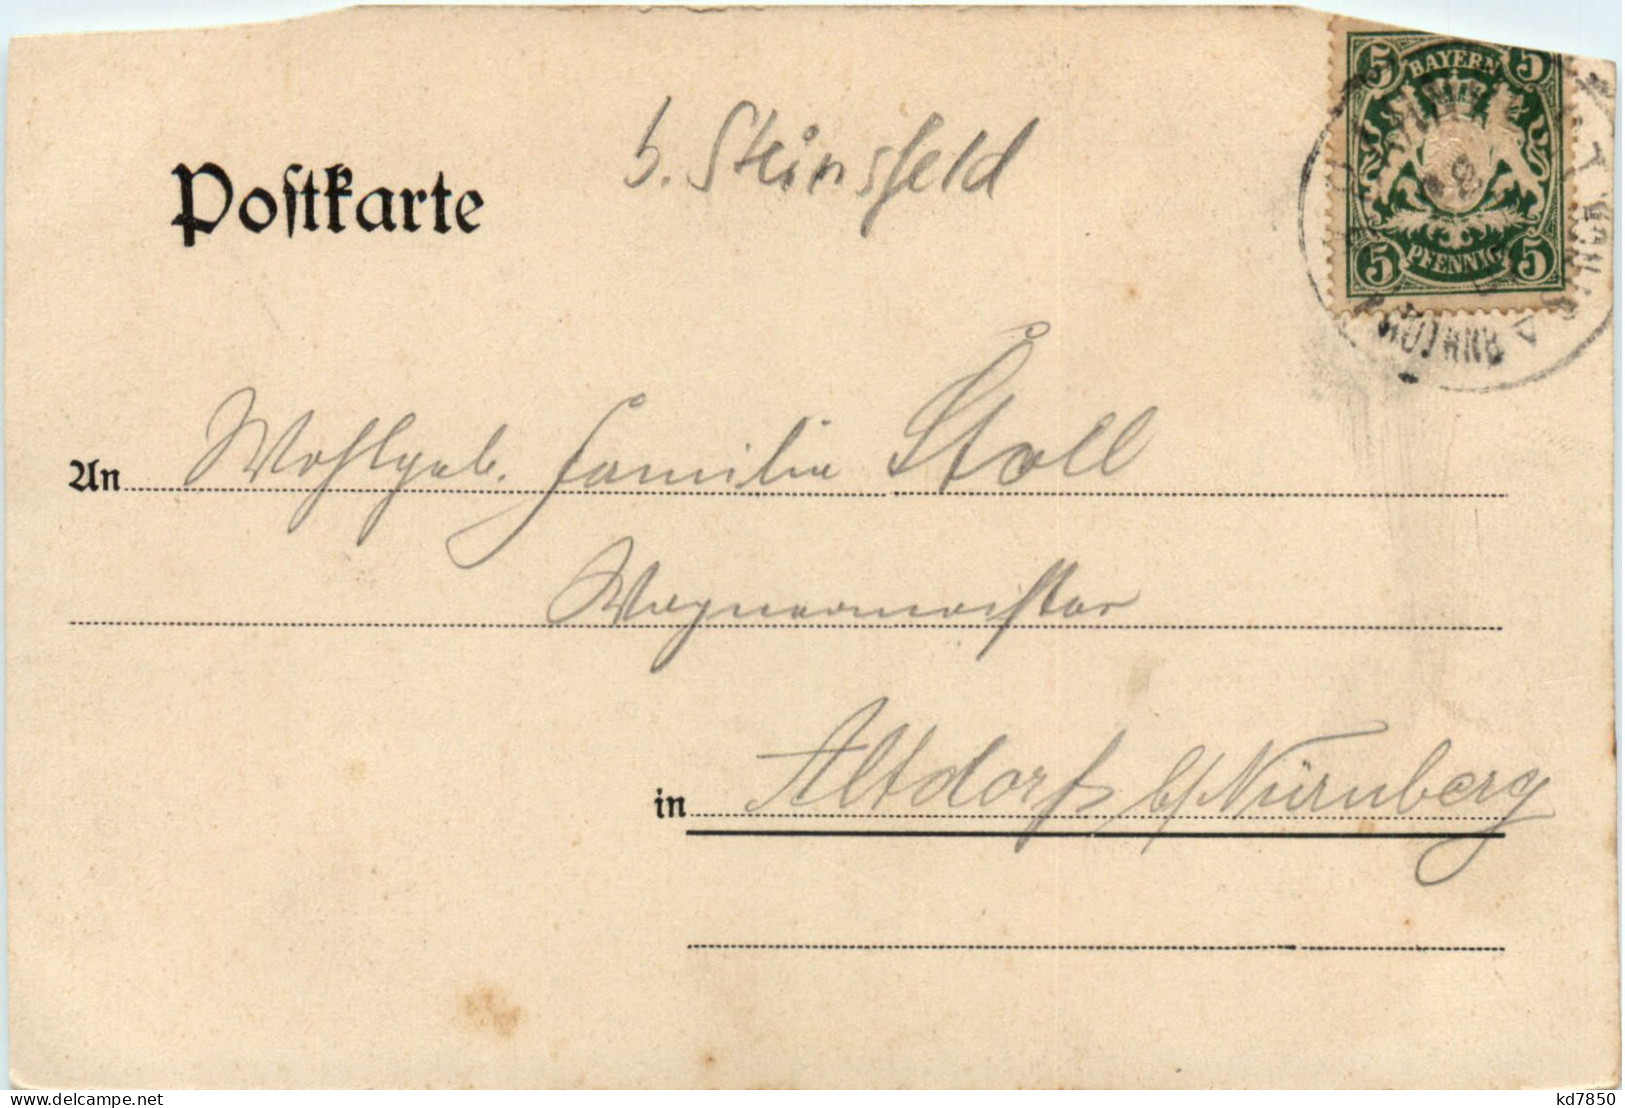 Postkarte
b. Steinsfeld
5 BAYERN 5
5 PFENNIG 5
An Wohlgeb. Familie Stoll
Wagnermeister
in Altdorf b/Nürnberg
kd7850